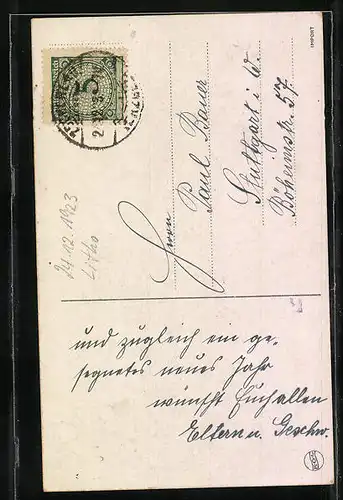 IMPORT
5
Herrn
Paul Bauer
Stuttgart i. W.
Böheimstr. 57
24.12.1923
Litho
und zugleich ein ge-
segnetes neues Jahr
wünscht Euch allen
Eltern u. Geschw.